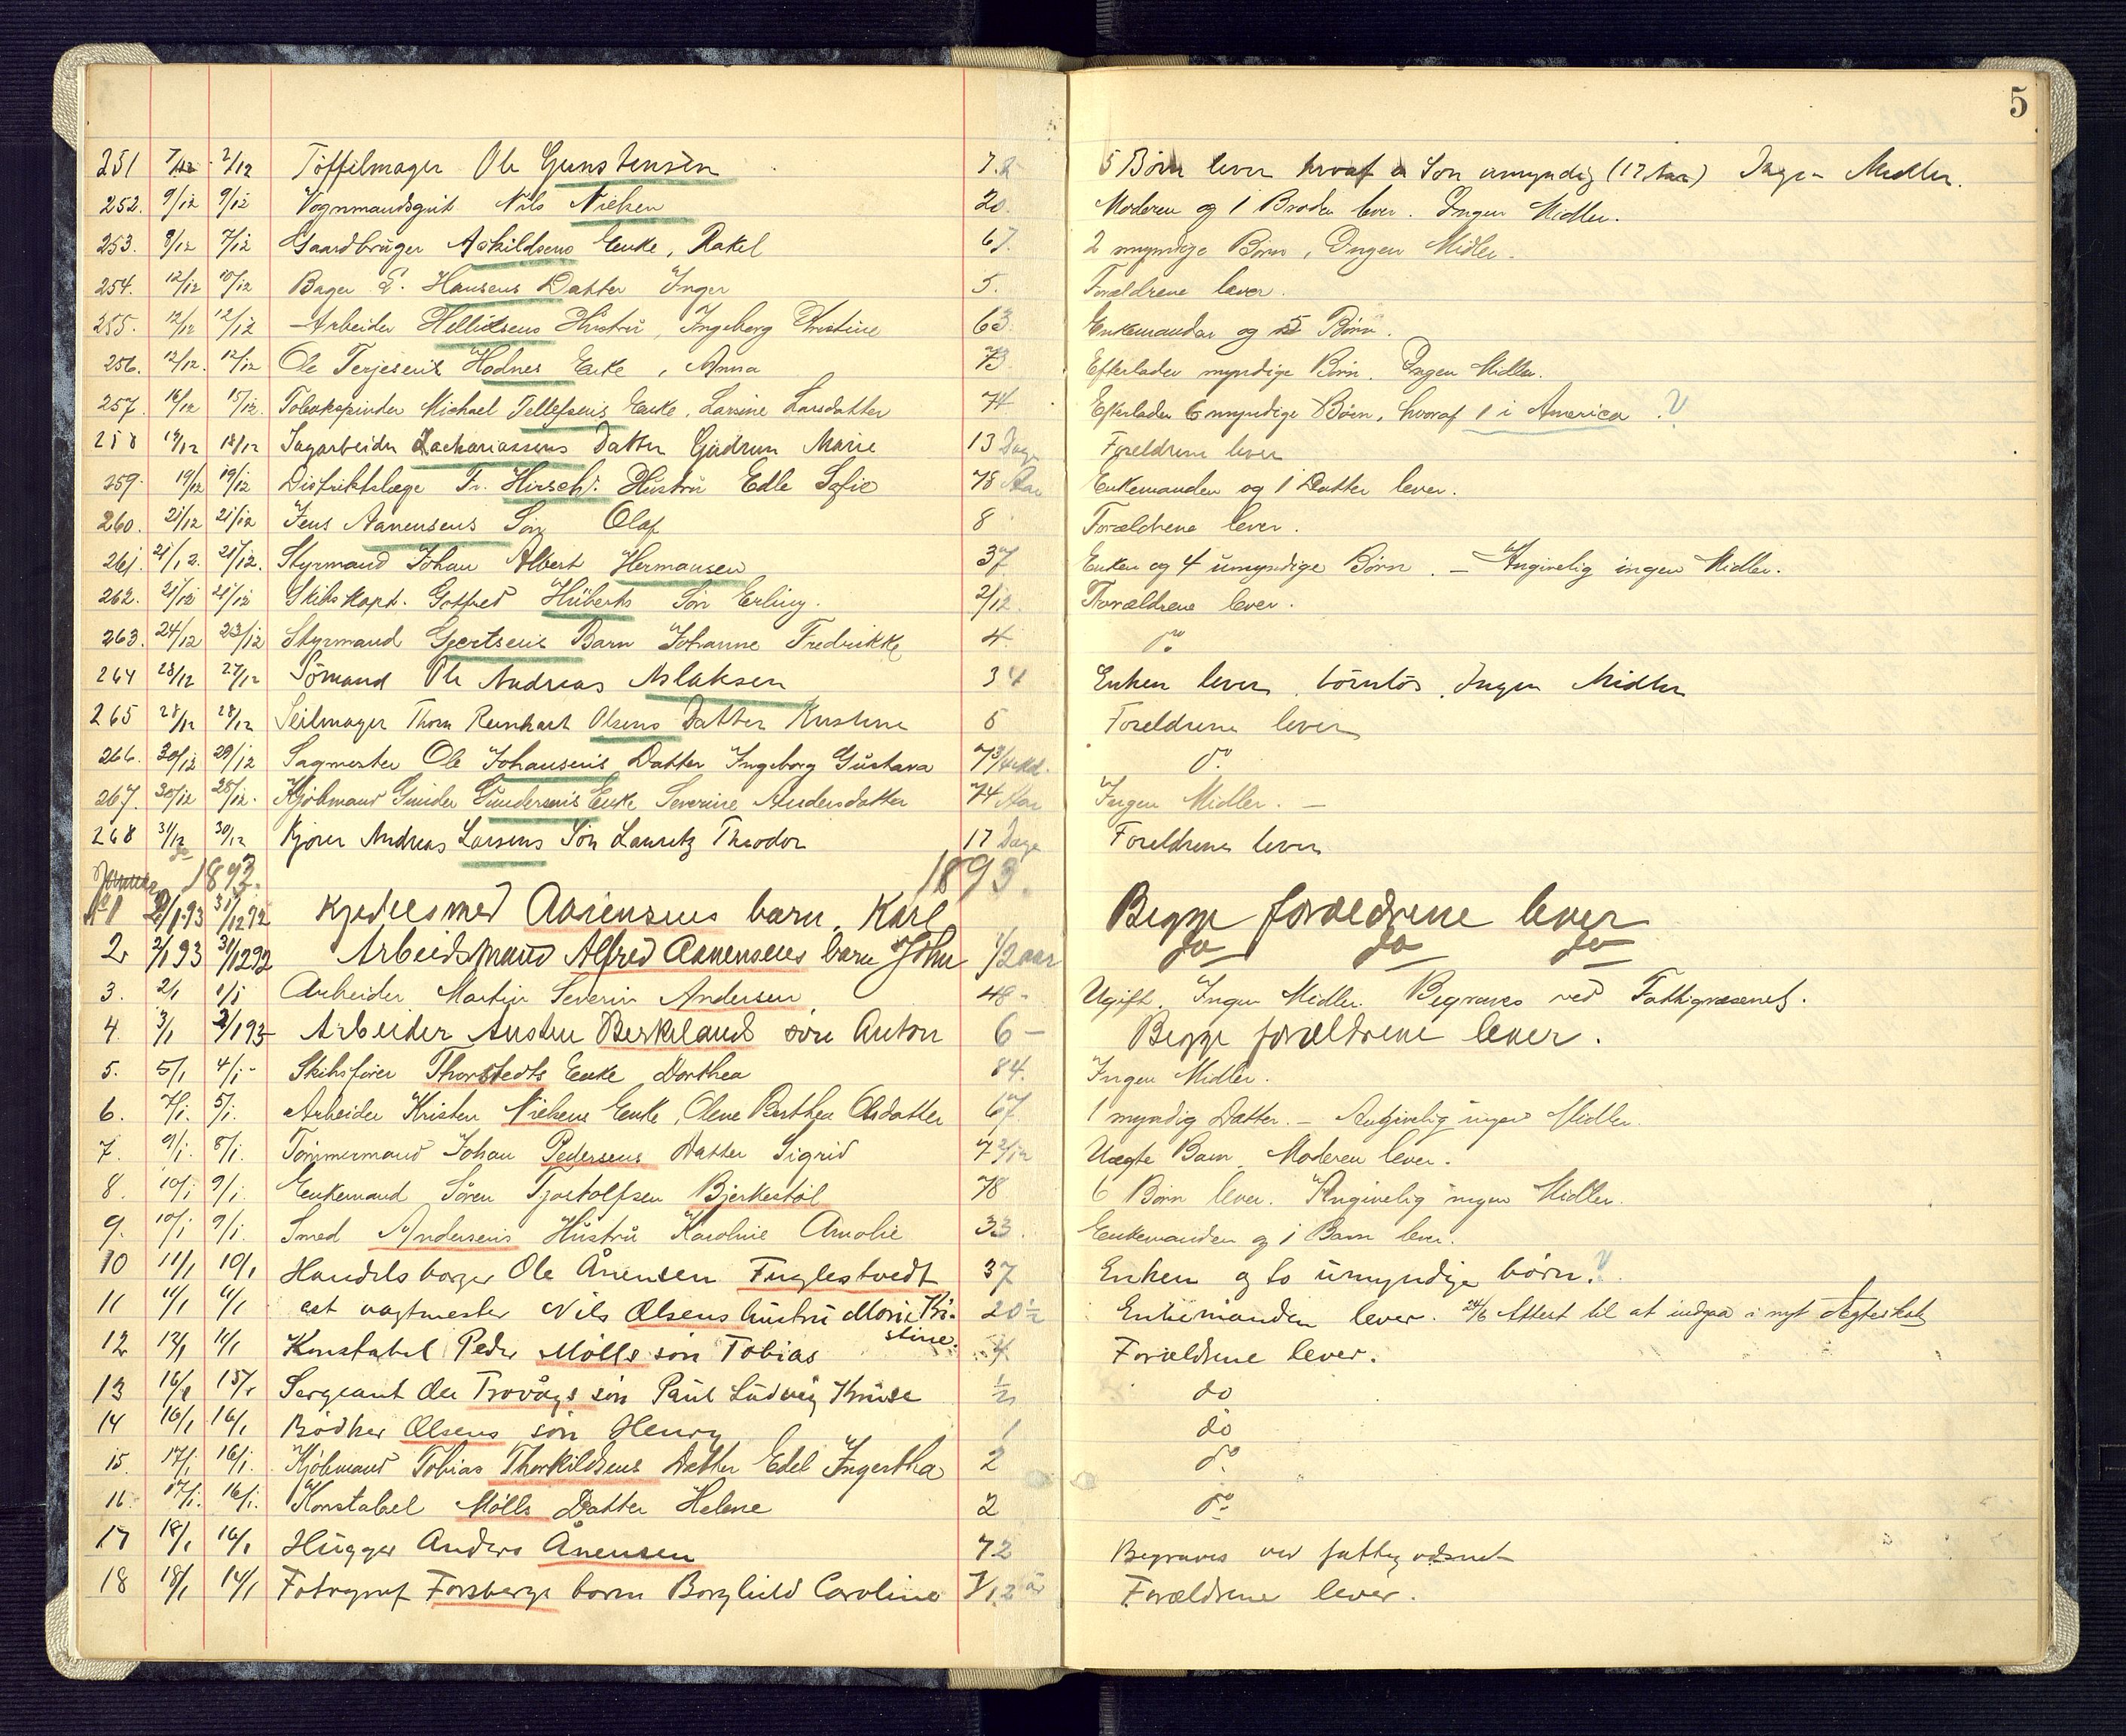 5
251 7/12 2/12 Töffelmager Ole Gunstensen 72 5 Börn lever hvoraf en Sön umyndig (17 Aar) Ingen Midler.
252. 9/12 9/12 Vognmandsgut Nils Nielsen 20. Moderen og 1 Broder lever. Ingen Midler.
253. 8/12 7/12 Gaardbruger Askildsens Enke, Rakel 67. 2 myndige Börn, Ingen Midler.
254. 12/12 10/12 Bager E. Hansens Datter Inger 5. Forældrene lever.
255. 12/12 12/12 Arbeider Hellidsens Hustru, Ingeborg Kristine 63. Enkemanden og 5 Börn.
256. 12/12. 12/12 Ole Terjesens Hodnes Enke, Anna 73 Efterlader myndige Börn. Ingen Midler.
257. 16/12 15/12. Tobakspinder Michael Tellefsens Enke, Larsine Larsdatter 74. Efterlader 6 myndige Börn, hvoraf 1 i America.
258 19/12 18/12 Sagarbeider Zachariassens Datter Gudrun Marie 13 Dage Foreldrene lever
259. 19/12 19/12 Distriktslæge Fr. Hirsch's Hustru Edle Sofie 78 Aar Enkemanden og 1 Datter lever.
260. 21/12 21/12 Jens Aanensens Sön Olaf 8 Forældrene lever.
261. 21/12. 21/12. Styrmand Johan Albert Hermansen 37 Enken og 4 umyndige Börn. – Angivelig ingen Midler.
262. 21/12 21/12 Skibskapt. Gotfred Hüberts Sön Erling. 2/12. Forældrene lever.
263. 24/12 23/12 Styrmand Geertsens Barn Johanne Fredrikke 4. do.
264 28/12 27/12 Sömand Ole Andreas Aslaksen 34 Enken lever, börnlös. Ingen Midler
265 28/12 28/12 Seilmager Thom Reinhart Olsens Datter Kristine 5 Foreldrene lever
266. 30/12 29/12 Sagmester Ole Johansens Datter Ingeborg Gustava 7 3/4 Md. do.
267. 30/12 28/12. Kjöbmand Gunder Gundersens Enke Severine Andersdatter 74 Aar Ingen Midler. –
268 31/12 30/12 Kjörer Andreas Larsens Sön Lauritz Theodor 17 Dage Foreldrene lever
Januar 1893. 1893.
No 1 2/1 93 31/12 92 Kjedelsmed Aanensens barn, Karl Begge forældrene lever
2 2/1 93 31/12 92 Arbeidsmand Alfred Aanensens barn John 1/2 aar do do do
3. 2/1 1/1 Arbeider Martin Severin Andersen 48 - Ugift. Ingen Midler. Begraves ved Fattigvæsenet.
4. 3/1 2/1 93 Arbeider Austen Berkelands sön Anton 6 – Begge forældrene lever.
5. 5/1 4/1 - Skibsförer Thorstedts Enke Dorthea 84. Ingen Midler.
6. 7/1. 5/1. Arbeider Kristen Nielsens Enke, Olene Berthea Olsdatter 67. 1 myndig Datter. – Angivelig ingen Midler.
7. 9/1. 8/1. Tömmermand Johan Pedersens Datter Sigrid 7 2/12 Uægte Barn. Moderen lever.
8. 10/1 9/1. Enkemand Sören Tjostolfsen Bjerkestöl 78 6 Börn lever. Angivelig ingen Midler.
9. 10/1 9/1. Smed Andersens Hustru Karoline Amalie 33. Enkemanden og 1 Barn lever.
10 11/1 10/1 Handelsborger Ole Ånensen Fuglestvedt 37 Enken og to umyndige börn.
11 11/1 11/1 vagtmester Nils Olsens hustru Marie Kri- 20 1/2 Enkemanden lever. 24/6 Attest til at indgaa i nyt Ægteskab
stine.
12 12/1 11/1 Konstabel Peder Mölls sön Tobias 4 Forældrene lever.
13 16/1 15/1 Sergeant Ole Trovågs sön Paul Ludvig Kruse 1/2 do
14 16/1 16/1 Bödker Olsens sön Henry 1 do
15. 17/1 16/1. Kjöbmand Tobias Thorkildsens Datter Edel Ingertha 2 do.
16. 17/1. 16/1. Konstabel Mölls Datter Helene 2 do.
17 18/1 16/1 Hugger Anders Ånensen 72 Begraves ved fattigvæsnet
18 18/1 14/1 Fotograf Forsbergs barn Borghild Caroline 7/12 år Forældrene lever.